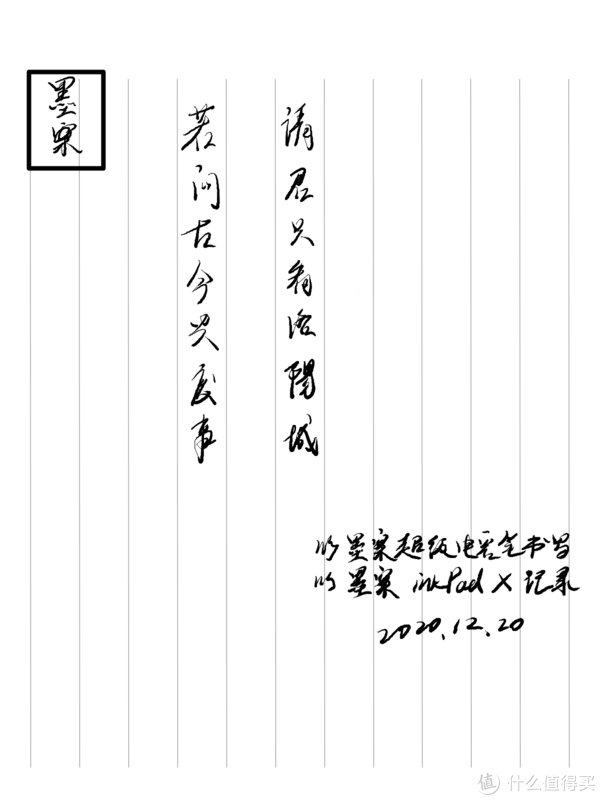 墨案
若问古今兴废事
请君只看洛陽城
以墨案超级电容笔书写
以墨案 inkPad X 记录
2020.12.20
值 什么值得买